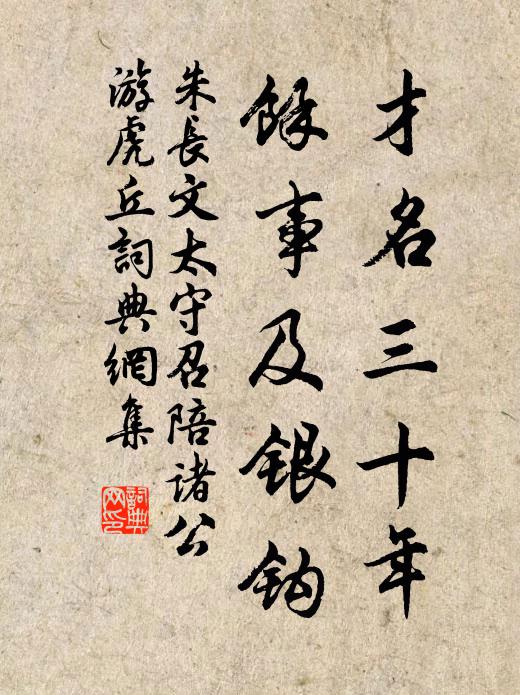 才名三十年
餘事及銀鈎
朱長文太守召陪諸公
游虎丘詞典網集
詞典
网印